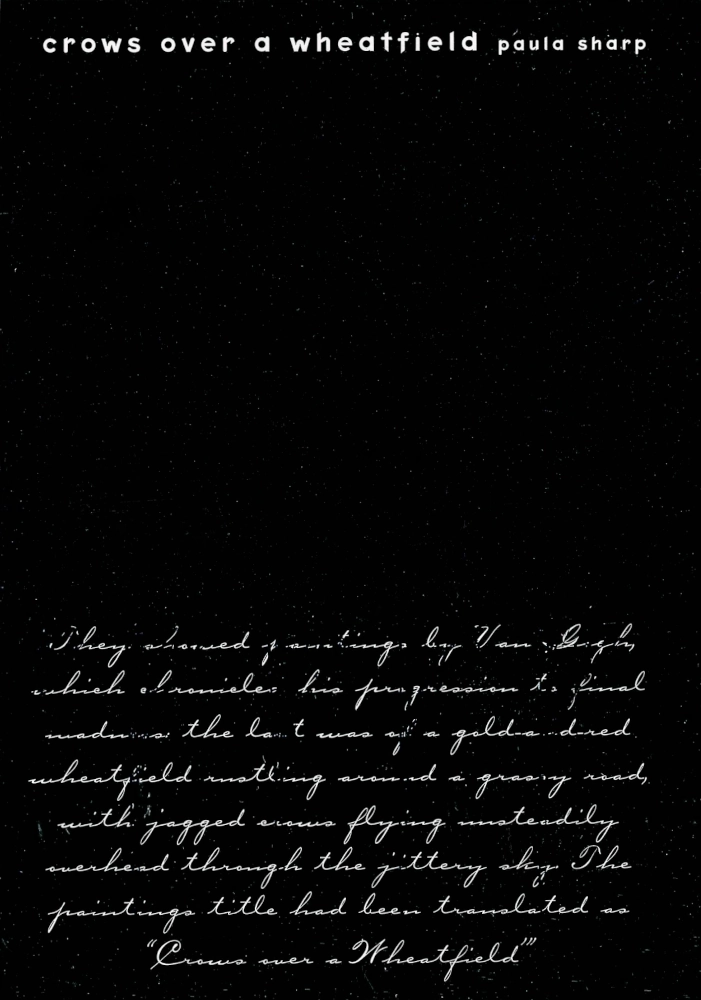 crows over a wheatfield paula sharp
They showed paintings by Van Gogh,
which chronicles his progression to final
madness the last was of a gold-and-red
wheatfield rustling around a grassy road,
with jagged crows flying unsteadily
overhead through the jittery sky. The
paintings title had been translated as
“Crows over a Wheatfield””